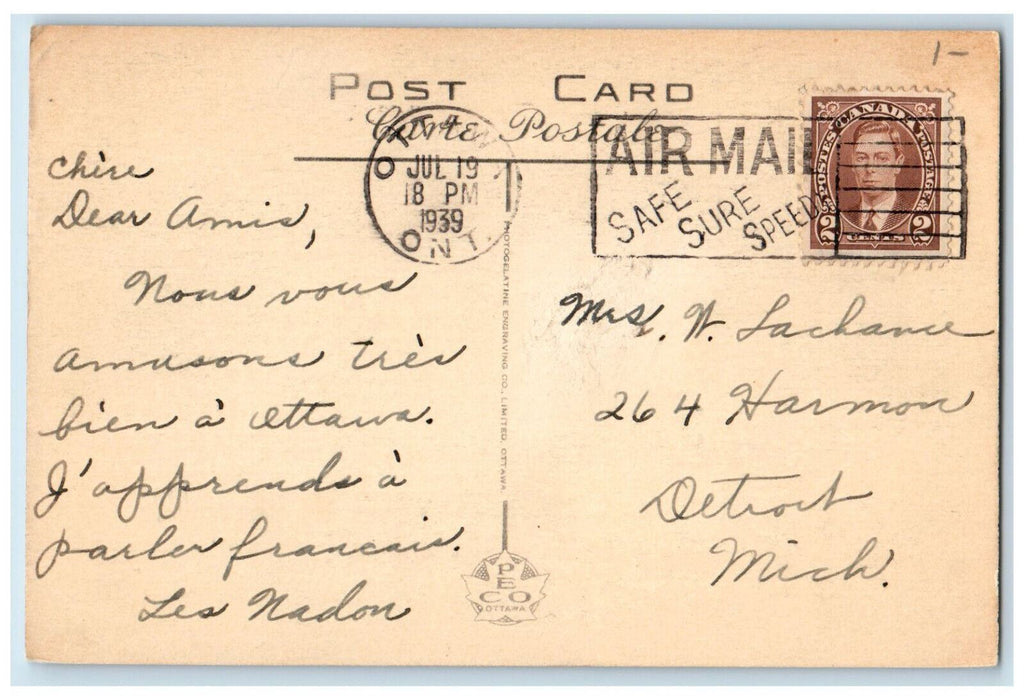 1-
POST CARD
Carte Postale
OTTAWA
JUL 19
18 PM
1939
ONT.
AIR MAIL
SAFE
SURE
SPEEDY
POSTES CANADA POSTAGE
2 CENTS 2
chère
Dear Amis,
Nous vous
amusons très
bien à Ottawa.
J'apprends à
parler francais.
Les Nadon
PHOTOGELATINE ENGRAVING CO., LIMITED, OTTAWA.
PECO
OTTAWA
Mrs. W. Lachance
264 Harmon
Detroit
Mich.